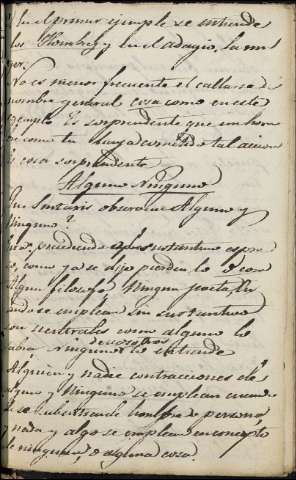 En el primer ejemplo se entiende
los Hombres y en el adagio, la mu
ger.
No es menos frecuente el callarse el
nombre general cosa como en este
ejemplo Es sorprendente que un hom
bre como tu haya cometido tal accion
es cosa sorprendente
Alguno Ninguno
Que Sintaxis observan Alguno y
Ninguno?
precediendo a los sustantivos espre
sos, como ya se dijo pierden la o con
Algun filosofo Ningun poeta,
se emplean sin sustantivo
son neutrales como alguno lo
Ninguno de vosotros lo entiende
Alguien y nadie contracciones de
alguno y Ninguno se emplean cuando
se subentiende hombre o persona
y nada y algo se emplean en concepto
de ninguna, o alguna cosa.